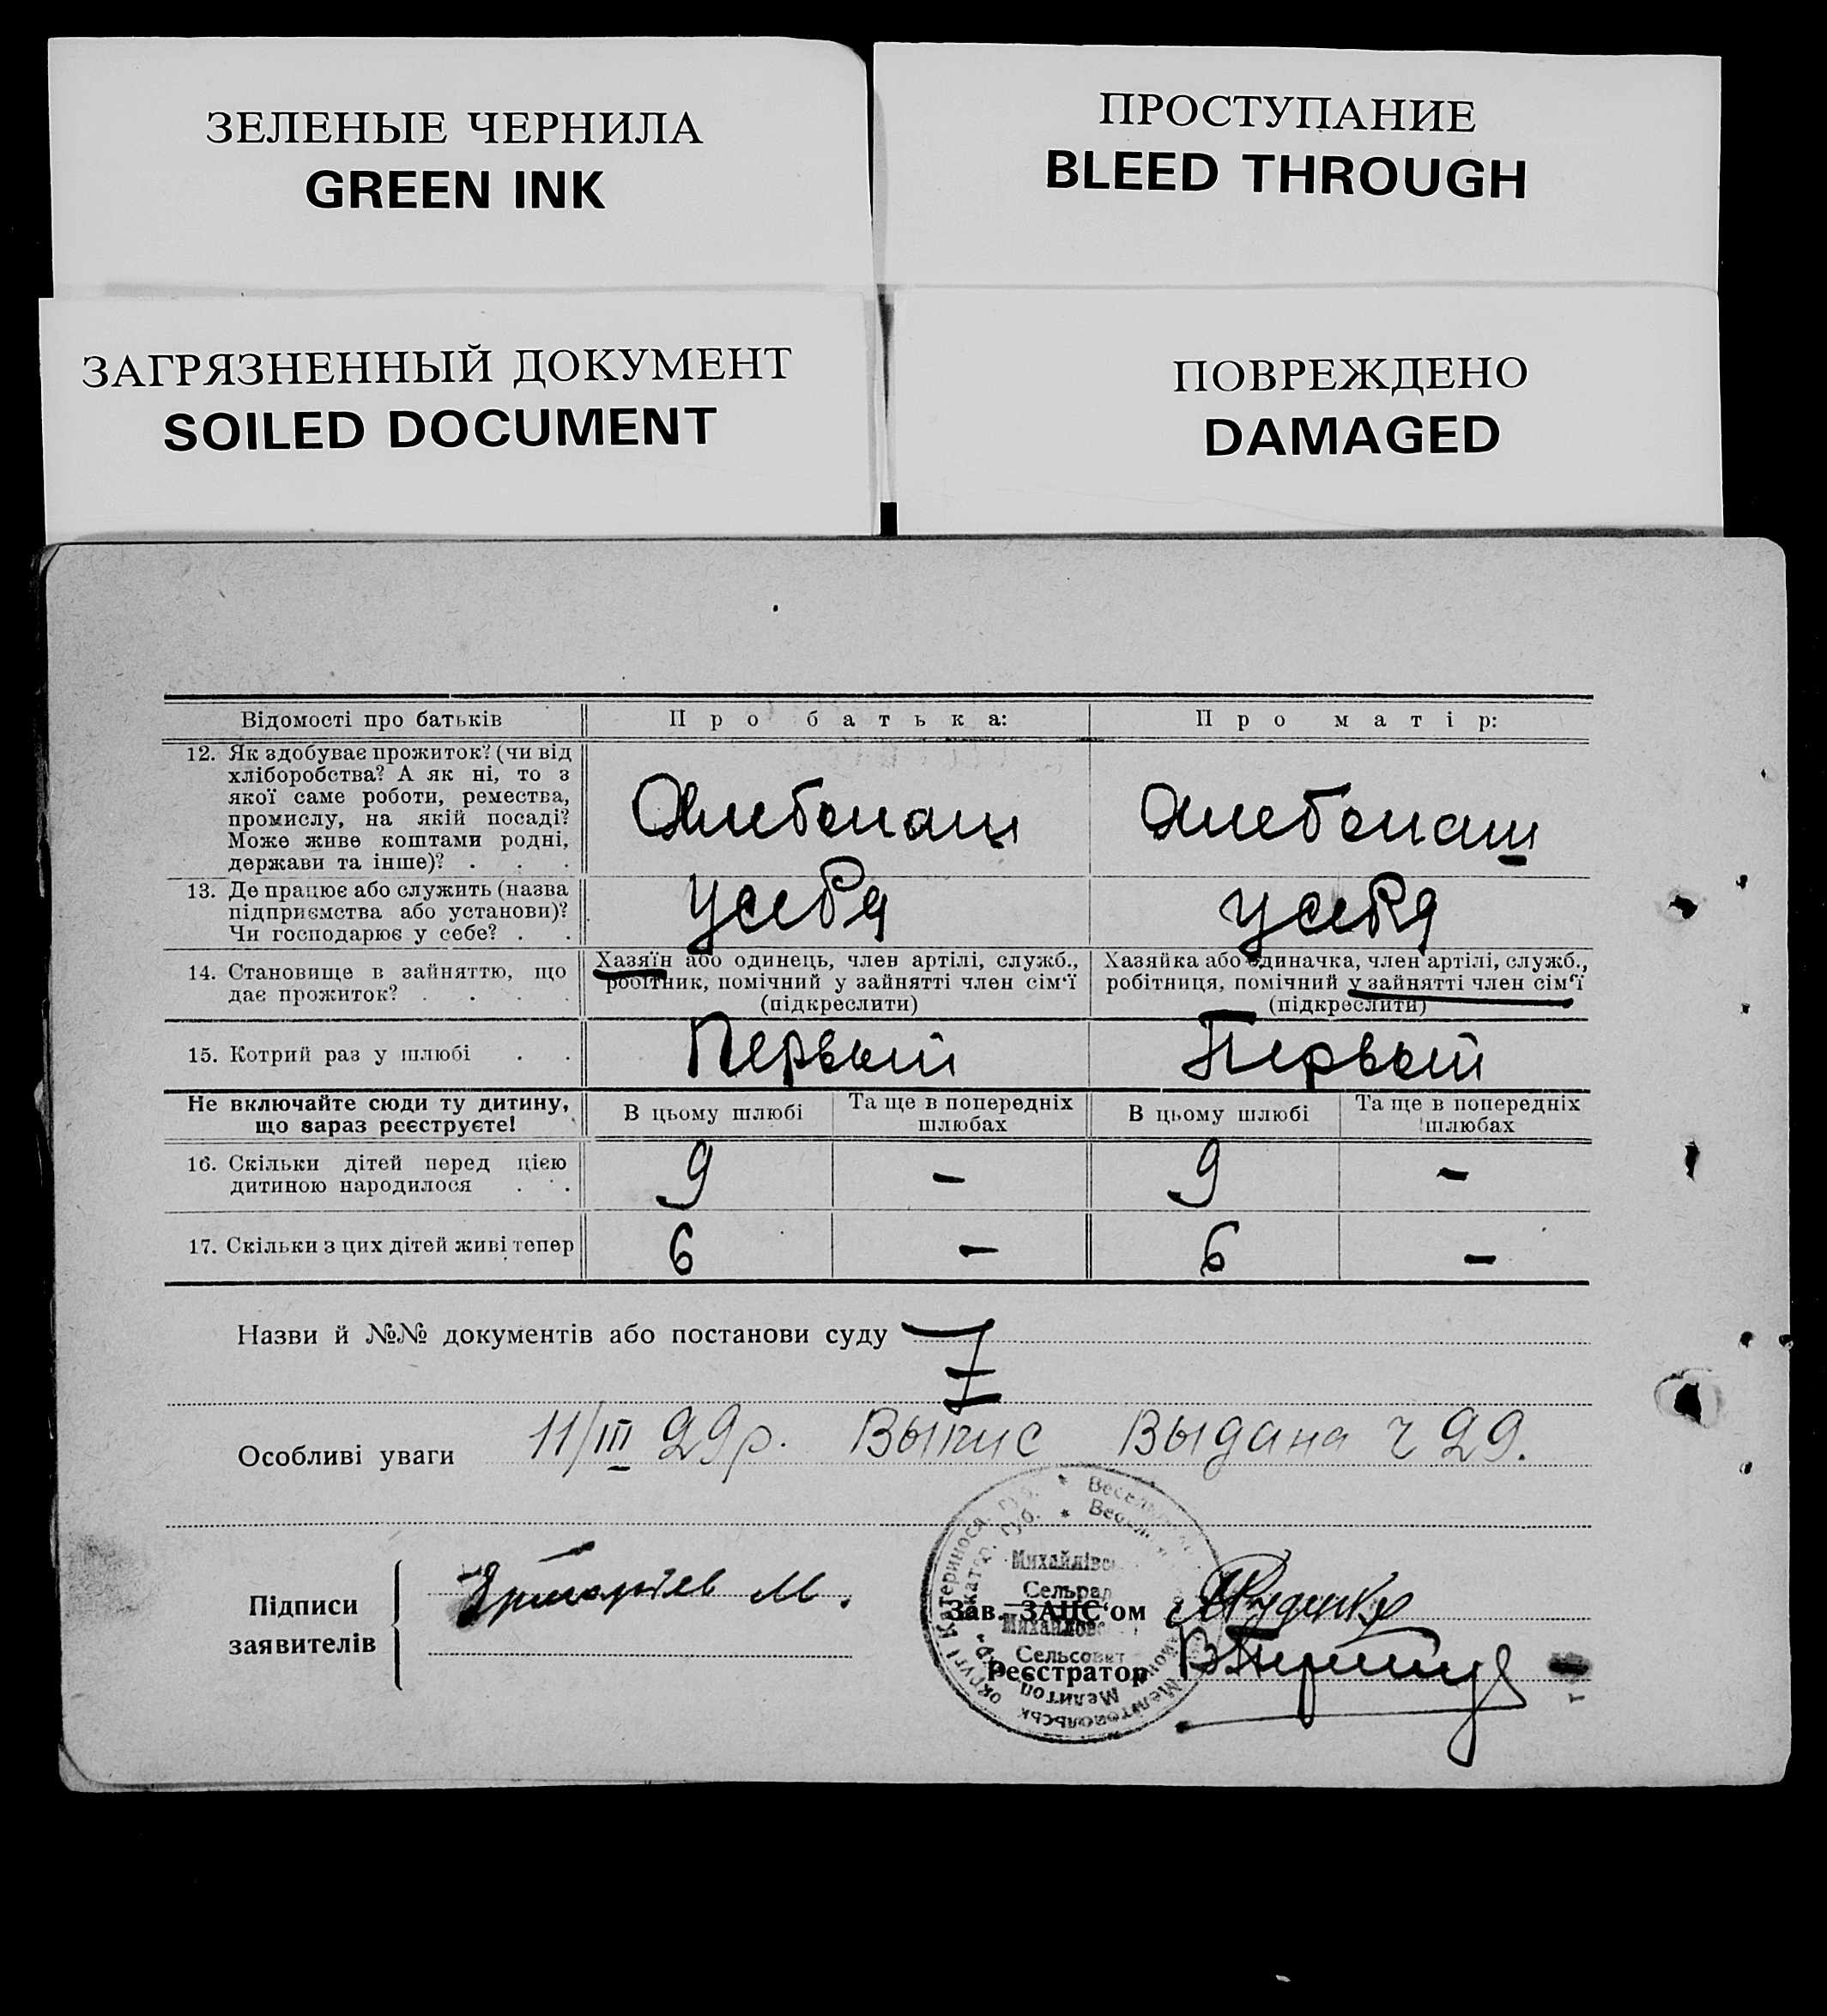 ЗЕЛЕНЫЕ ЧЕРНИЛА
GREEN INK
ПРОСТУПАНИЕ
BLEED THROUGH
ЗАГРЯЗНЕННЫЙ ДОКУМЕНТ
SOILED DOCUMENT
ПОВРЕЖДЕНО
DAMAGED
Відомості про батьків Про батька: Про матір:
12. Як здобуває прожиток? (чи від
хліборобства? А як ні, то з
якої саме роботи, ремества,
промислу, на якій посаді?
Може живе коштами родні,
держави та інше)? . . .
Хлебопаш Хлебопаш
13. Де працює або служить (назва
підприємства або установи)?
Чи господарює у себе? . .
у себя у себя
14. Становище в зайняттю, що
дає прожиток? . . . .
Хазяїн або одинець, член артілі, служб.,
робітник, помічний у зайнятті член сім'ї
(підкреслити)
Хазяйка або одиначка, член артілі, служб.,
робітниця, помічний у зайнятті член сім'ї
(підкреслити)
15. Котрий раз у шлюбі . . Первый Первый
Не включайте сюди ту дитину,
що зараз реєструєте!
В цьому шлюбі
Та ще в попередніх
шлюбах
В цьому шлюбі
Та ще в попередніх
шлюбах
16. Скільки дітей перед цією
дитиною народилося . . .
9 - 9 -
17. Скільки з цих дітей живі тепер 6 - 6 -
Назви й №№ документів або постанови суду
Особливі уваги 11/III 29р. Выпис Выдана ч 29.
Підписи
заявителів
М.
Михайлівс
Сельрад
Михайловс
Сельсовет
Зав. ЗАПС'ом Руденко
Реєстратор